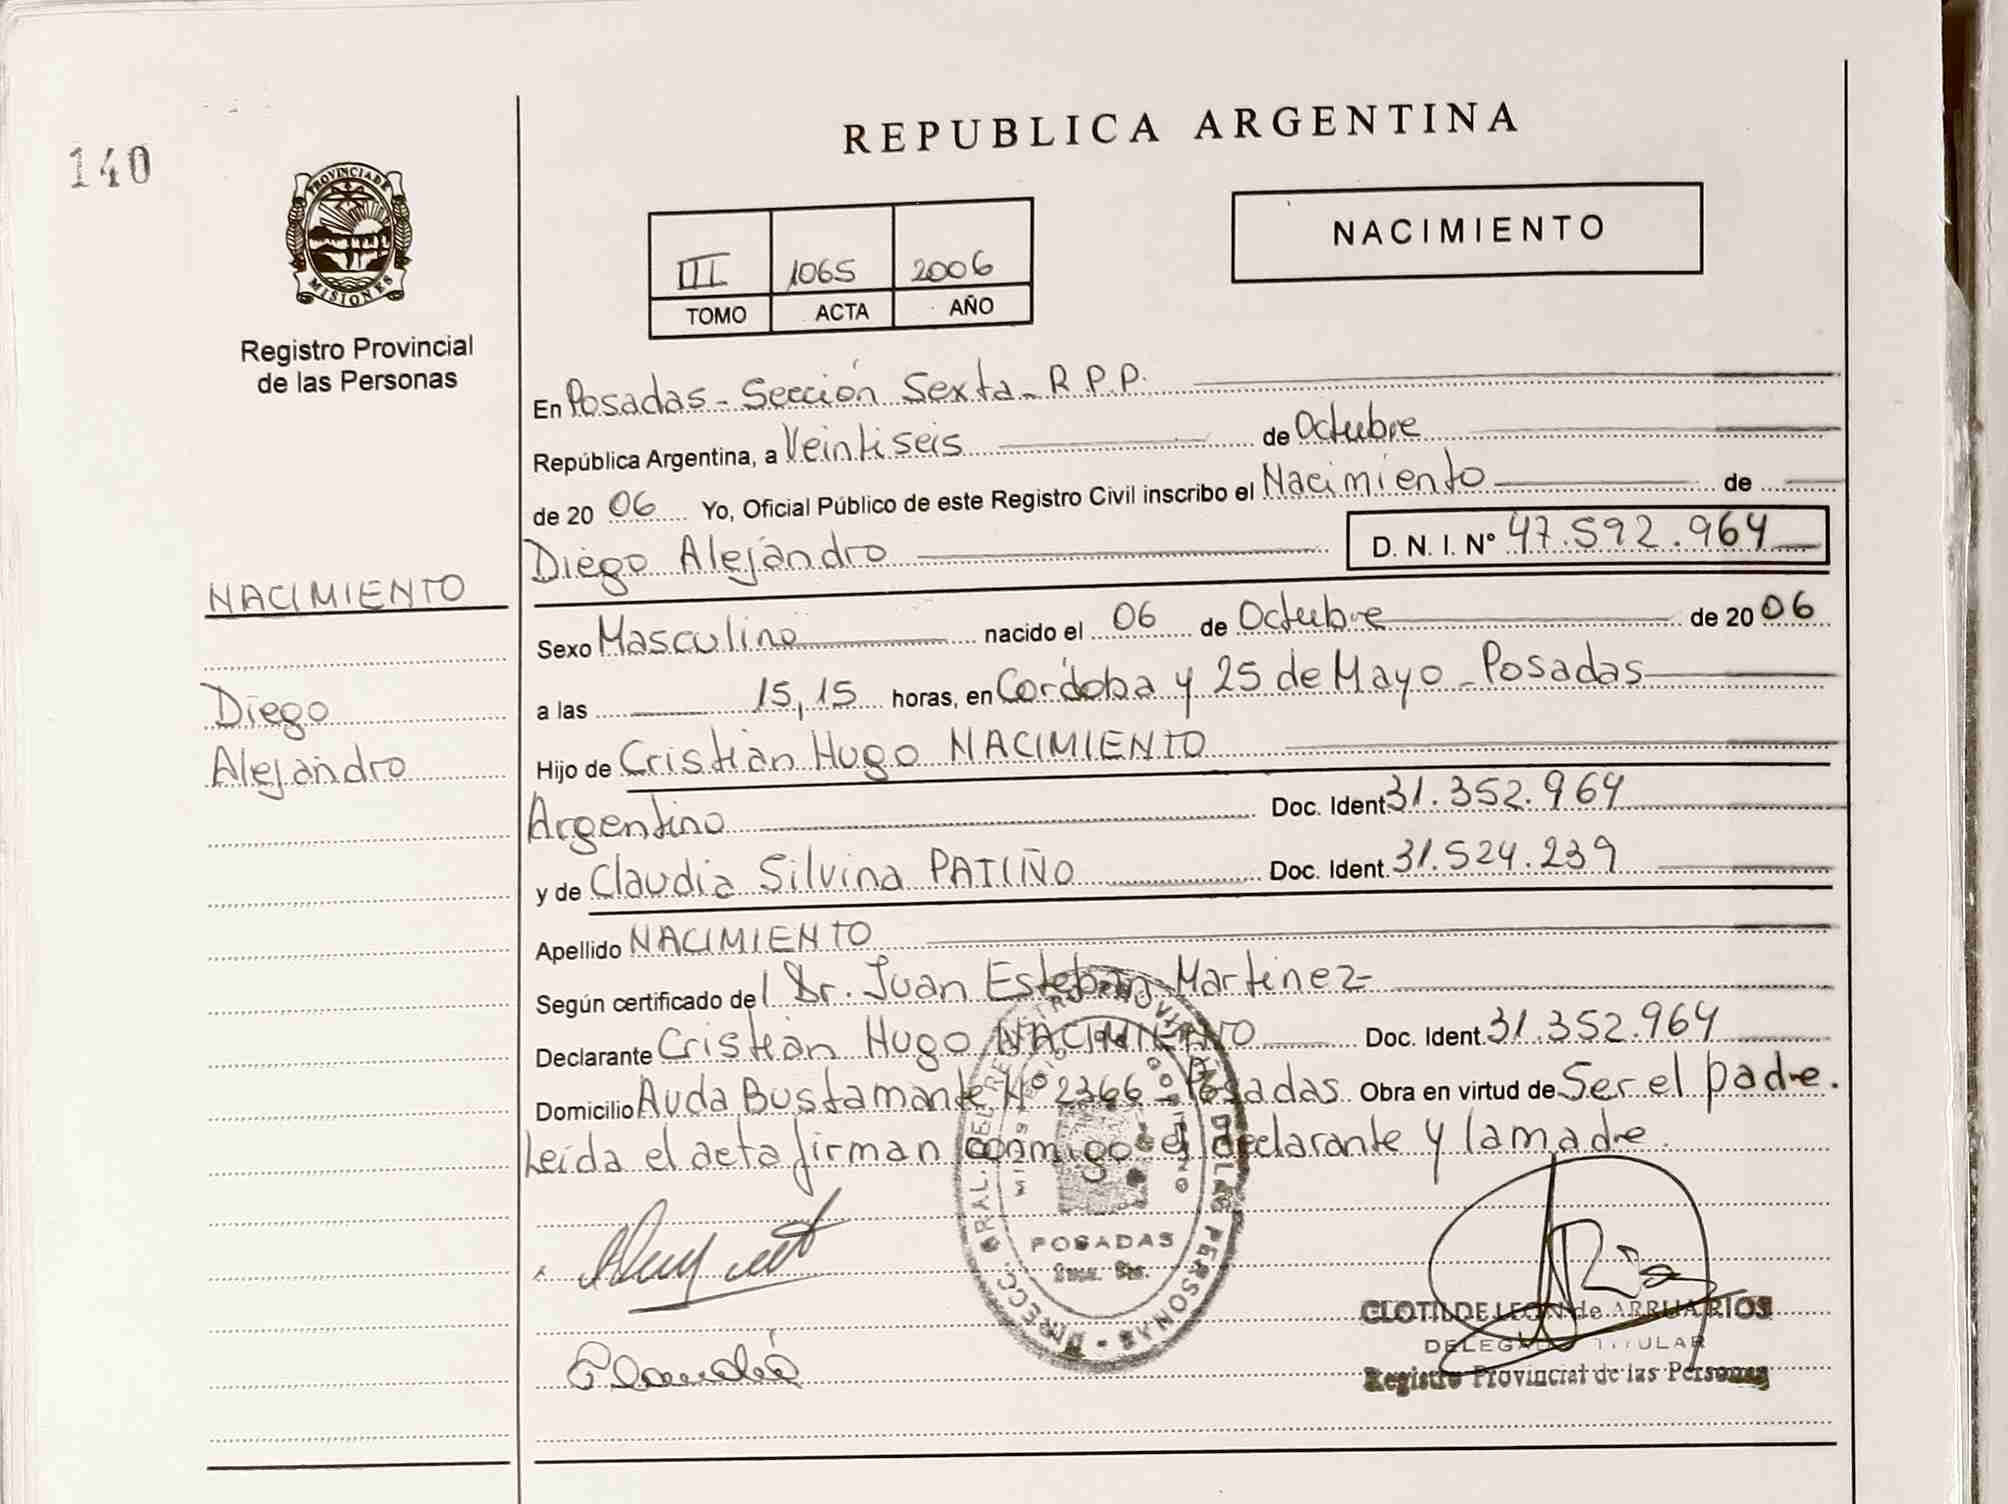 140
PROVINCIA DE
MISIONES
Registro Provincial
de las Personas
REPUBLICA ARGENTINA
III 1065 2006
TOMO ACTA AÑO
NACIMIENTO
En Posadas - Sección Sexta - R.P.P.
República Argentina, a Veintiseis de Octubre
de 20 06 Yo, Oficial Público de este Registro Civil inscribo el Nacimiento de
Diego Alejandro D. N. I. Nº 47.592.964
NACIMIENTO
Diego
Alejandro
Sexo Masculino nacido el 06 de Octubre de 20 06
a las 15,15 horas, en Córdoba y 25 de Mayo - Posadas
Hijo de Cristian Hugo NACIMIENTO
Argentino Doc. Ident. 31.352.964
y de Claudia Silvina PATIÑO Doc. Ident. 31.524.239
Apellido NACIMIENTO
Según certificado del Dr. Juan Esteban Martinez
Declarante Cristian Hugo NACIMIENTO Doc. Ident. 31.352.964
Domicilio Avda Bustamante Nº 2366 - Posadas Obra en virtud de Ser el padre.
Leída el acta firman conmigo el declarante y la madre.
POSADAS
Claudia
CLOTILDE LEON de ARRUA RIOS
DELEGADO TITULAR
Registro Provincial de las Personas